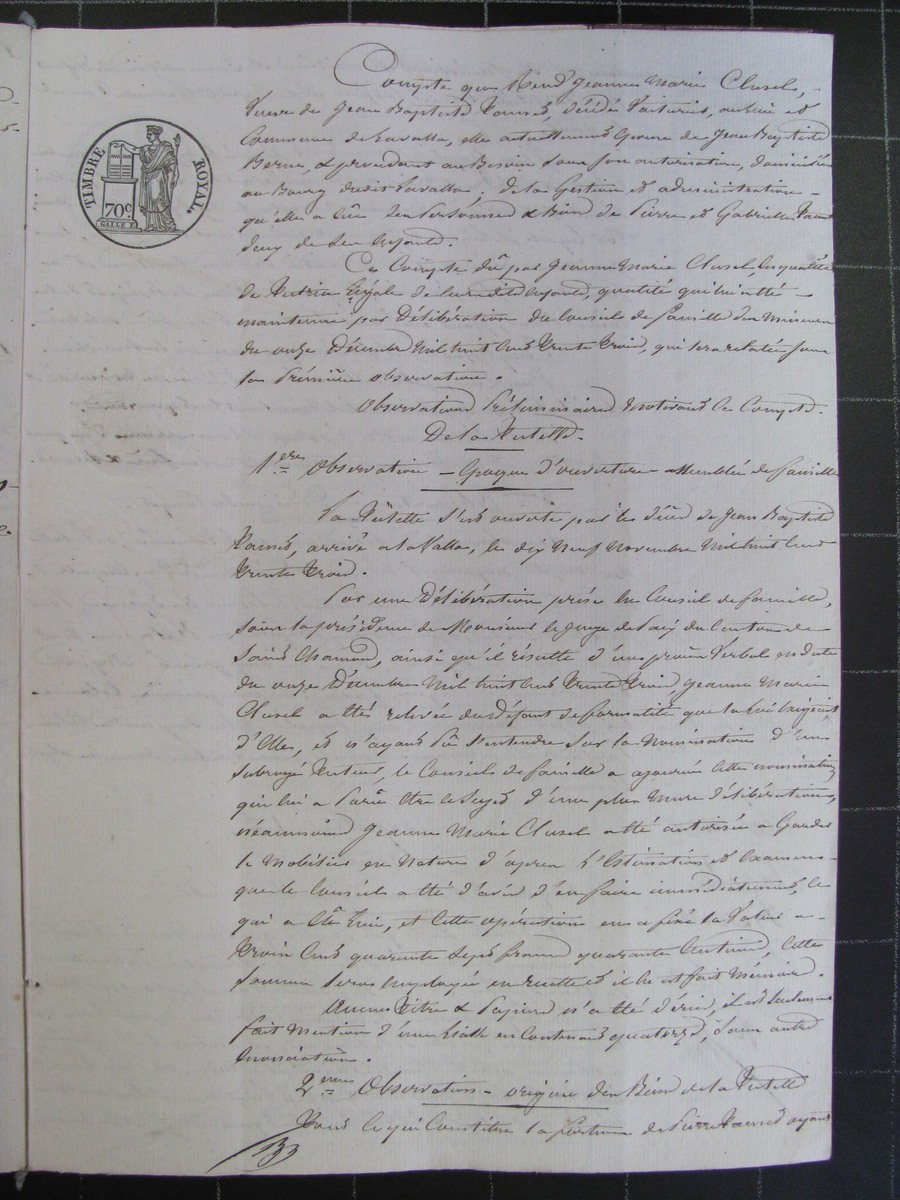 TIMBRE ROYAL.
70c.
Compte que Rend Jeanne Marie Clusel, -
Veuve de Jean Baptiste décédé Voiturier, au lieu et
Commune de Lavalla, elle actuellement Epouse de Jean Baptiste
Berne, & procédant au Besoin Sous son autorisation, domiciliée
au Bourg dudit Lavalla, de la Gestion et administration -
qu'elle a Eûe des Personnes & Biens de Pierre et Gabrielle
deux de Ses Enfants.
Ce Compte dû par Jeanne Marie Clusel, En qualité
de Tutrice Légale de Sesdits Enfants, qualité qui lui a été -
maintenue par Délibération du Conseil de famille des Mineurs
du onze Décembre Mil huit Cent Trente Trois, qui sera relatée sous
la Première observation.
Observations Préliminaires Motivant le Compte
De la Tutelle.
1ère Observation - Epoque d'ouverture - assemblée de famille
La Tutelle s'est ouverte par le Décès de Jean Baptiste
arrivé a La Valla, le dix Neuf Novembre Mil huit Cent
Trente Trois.
Par une Délibération prise En Conseil de famille,
sous la présidence de Monsieur le Juge de Paix du Canton de
Saint Chamond, ainsi qu'il résulte d'un procès Verbal en date
du onze Décembre Mil huit Cent Trente Trois Jeanne Marie
Clusel a été relevée du Défaut de formalité que la Loi Exigeait
d'Elle, et n'ayant Pû S'entendre Sur la Nomination d'un
Subrogé Tuteur, le Conseil de famille a ajourné Cette nomination
qui lui a Paru Etre le Sujet d'une plus Mure délibération,
néanmoins Jeanne Marie Clusel a été autorisée a Garder
le Mobilier en Nature d'après L'Estimation et Examens -
que le Conseil a été d'avis d'en faire immédiatement, Ce
qui a Eté fait, et Cette opération en a fixé la Valeur a -
Trois Cent quarante Sept francs quarante Centimes, Cette
Somme Sera Employée en recette Et il En est fait Mémoire.
Aucuns Titres & Papiers n'a été décrit, il est Seulement
fait Mention d'une Liasse en Contenant quatorze, Sans autre
Enonciation.
2ème Observation - origine des Biens de la Tutelle
Tout Ce qui Constitue la fortune de Pierre ayant